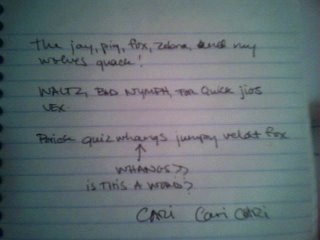 The jay, pig, fox, zebra, and my
wolves quack!
WALTZ, BAD NYMPH, FOR QUICK JIGS
VEX.
Brick quiz whangs jumpy veldt fox
WHANGS??
IS THIS A WORD?
CARI Cari CARI